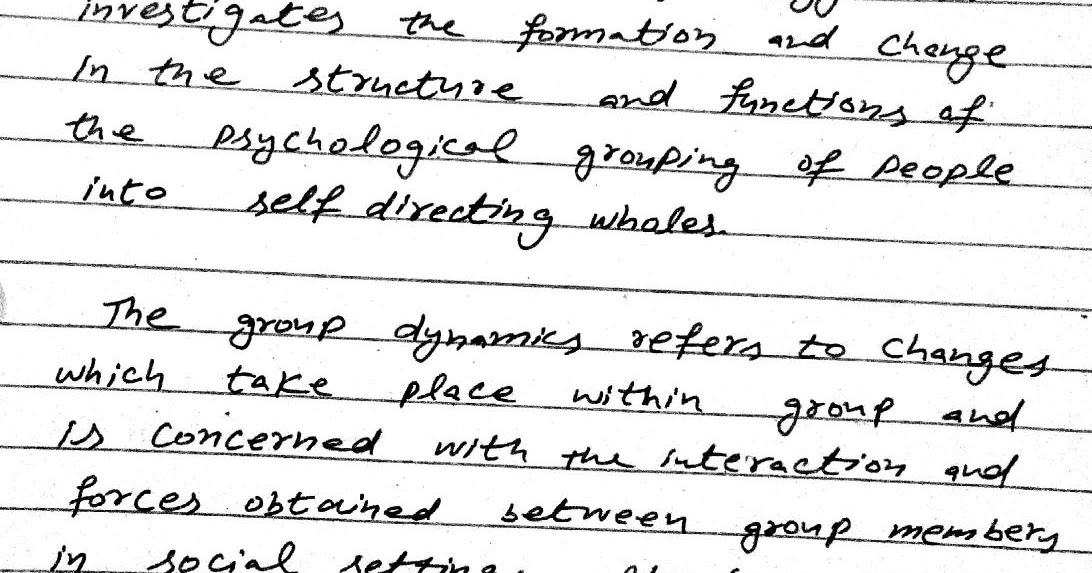 investigates the formation and change
in the structure and functions of
the psychological grouping of people
into self directing wholes.
The group dynamics refers to changes
which take place within group and
is concerned with the interaction and
forces obtained between group members
in social setting.